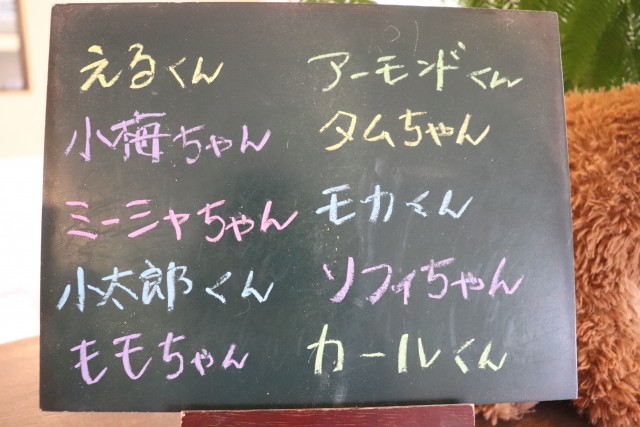 えるくん
小梅ちゃん
ミーシャちゃん
小太郎くん
もモちゃん
アーモンドくん
タムちゃん
モカくん
ソフィちゃん
カールくん